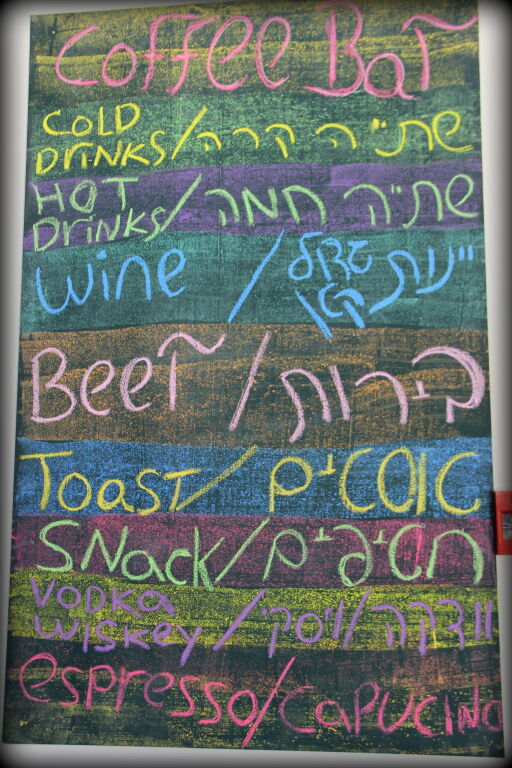 Coffee Bar
COLD
DrinkS/שתייה קרה
HOT
DrinkS/שתייה חמה
wine / יינות גדול
קטן
Beer / בירות
Toast/טוסטים
SNack/חטיפים
VoDka
wiskey/וודקה/ויסקי
espresso/CapuciNo